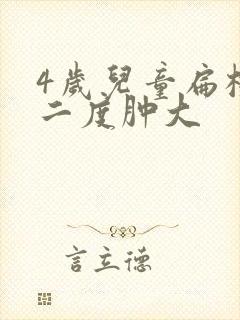 4歲兒童扁桃
二度肿大
言立德